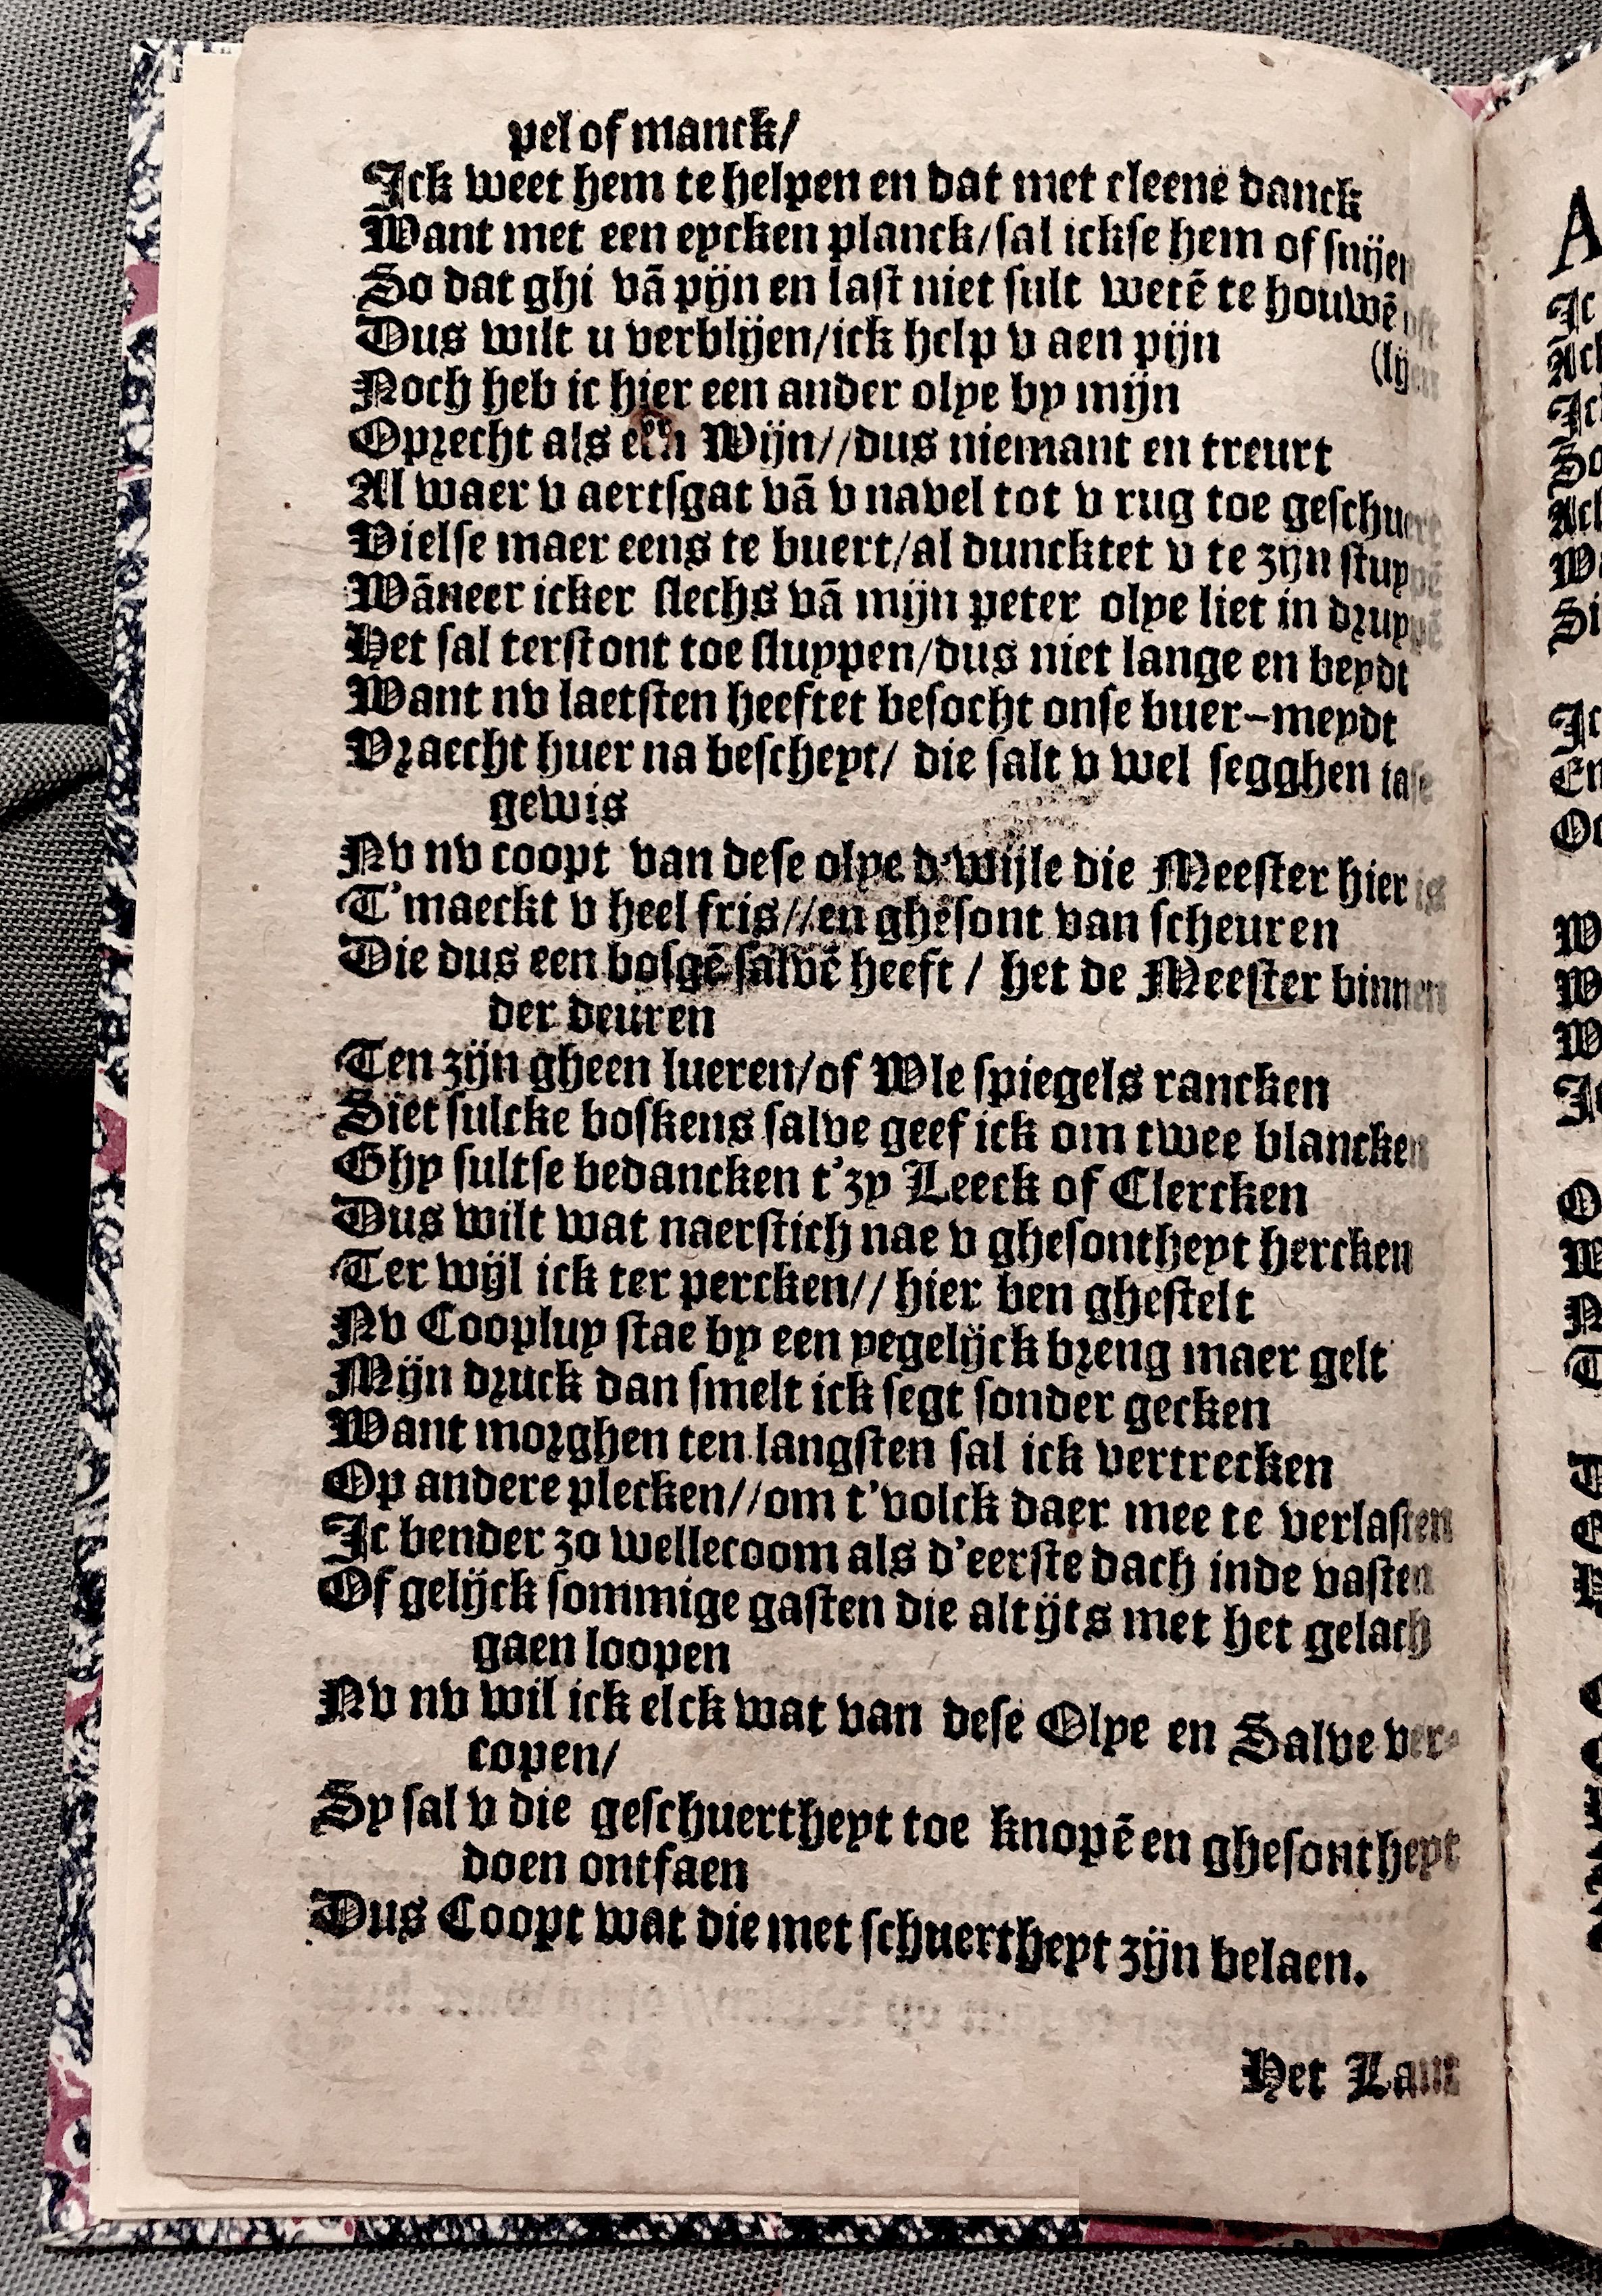 pel of manck/
Ick weet hem te helpen en dat met cleene danck
Want met een eycken planck/sal ickse hem of snijen
So dat ghi vā pijn en last niet sult wetē te houwē oft
Dus wilt u verblijen/ick help v aen pijn (lijen
Noch heb ic hier een ander olye by mijn
Oprecht als een Wijn//dus niemant en treurt
Al waer v aertsgat vā v navel tot v rug toe geschuert
Vielse maer eens te buert/al duncktet v te zijn stuypē
Wāneer icker slechs vā mijn peter olye liet in druypē
Het sal terstont toe sluypen/dus niet lange en beydt
Want nv laetsten heeftet besocht onse buer-meydt
Vraecht huer na bescheyt/ die salt v wel segghen iase
gewis
Nv nv coopt van dese olye d'wijle die Meester hier is
T'maeckt v heel fris//en ghesont van scheuren
Die dus een bosgē salvē heeft / het de Meester binnen
der deuren
Ten zijn gheen lueren/of Wle spiegels rancken
Siet sulcke boskens salve geef ick om twee blancken
Ghy sultse bedancken t'zy Leeck of Clercken
Dus wilt wat naerstich nae v ghesontheyt hercken
Ter wijl ick ter percken// hier ben ghestelt
Nv Coopluy stae by een yegelijck breng maer gelt
Mijn druck dan smelt ick segt sonder gecken
Want morghen ten langsten sal ick vertrecken
Op andere plecken//om t'volck daer mee te verlasten
Ic bender zo wellecoom als d'eerste dach inde vasten
Of gelijck sommige gasten die altijts met het gelach
gaen loopen
Nv nv wil ick elck wat van dese Olye en Salve ver-
copen/
Sy sal v die geschuertheyt toe knopē en ghesontheyt
doen ontfaen
Dus Coopt wat die met schuertheyt zijn belaen.
Het Lant